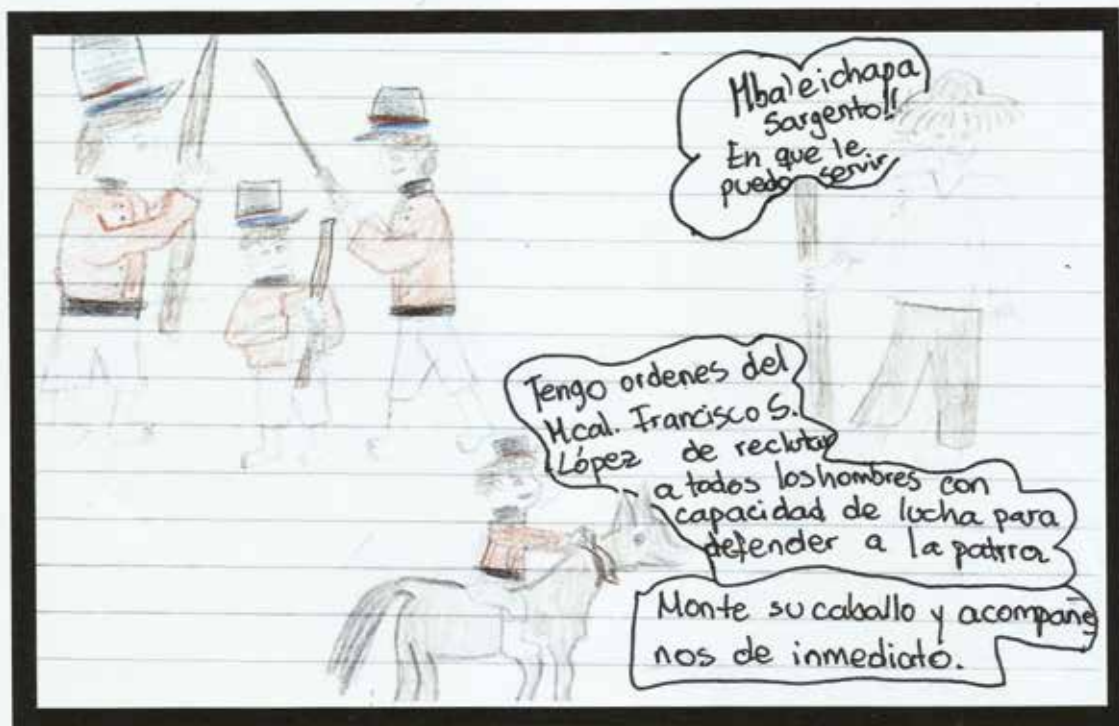 Mba'eichapa
sargento!!
En que le
puedo servir
Tengo ordenes del
Mcal. Francisco S.
López de reclutar
a todos los hombres con
capacidad de lucha para
defender a la patria
Monte su caballo y acompañe
nos de inmediato.